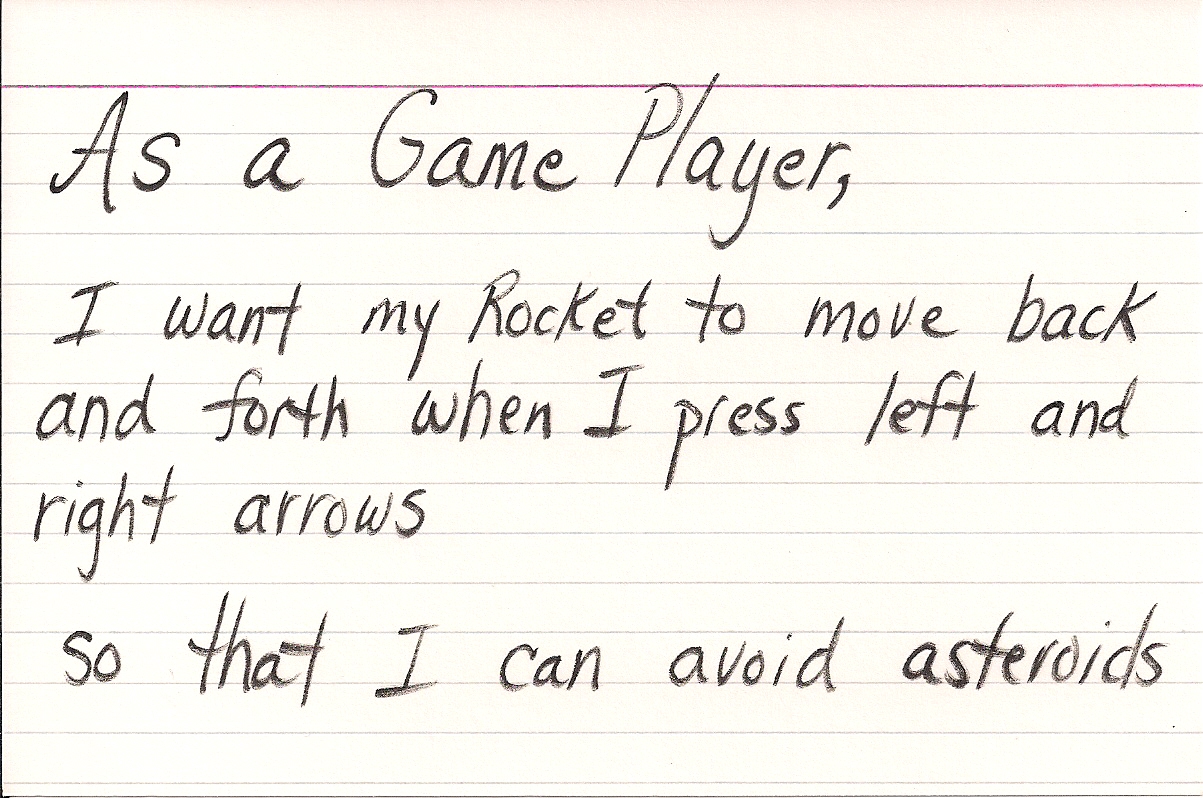 As a Game Player,
I want my Rocket to move back
and forth when I press left and
right arrows
so that I can avoid asteroids